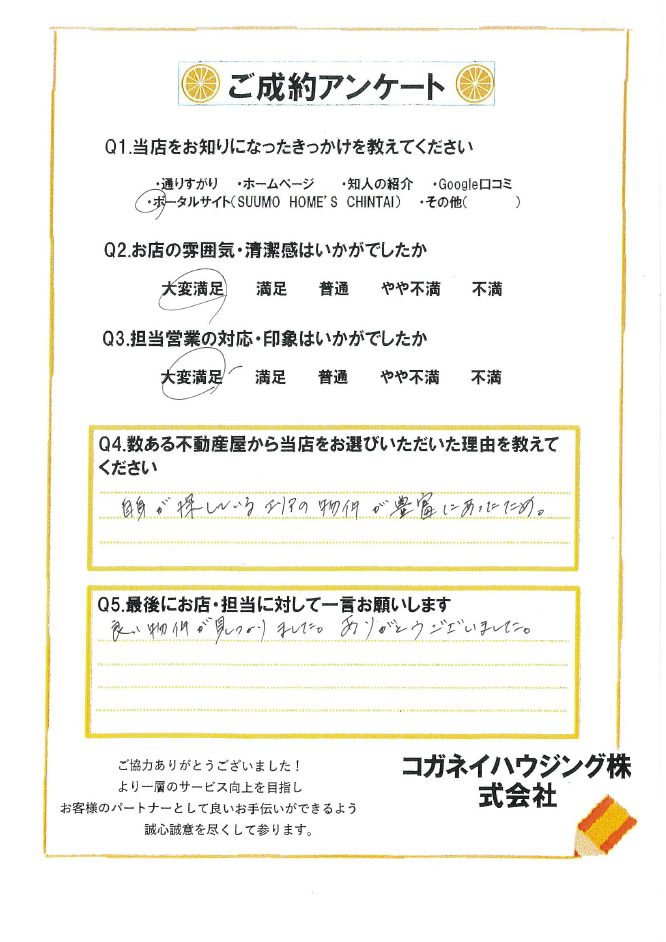 ご成約アンケート
Q1.当店をお知りになったきっかけを教えてください
・通りすがり ・ホームページ ・知人の紹介 ・Google口コミ
・ポータルサイト(SUUMO HOME'S CHINTAI) ・その他( )
Q2.お店の雰囲気・清潔感はいかがでしたか
大変満足 満足 普通 やや不満 不満
Q3.担当営業の対応・印象はいかがでしたか
大変満足 満足 普通 やや不満 不満
Q4.数ある不動産屋から当店をお選びいただいた理由を教えて
ください
自身が探しているエリアの物件が豊富にあったため。
Q5.最後にお店・担当に対して一言お願いします
良い物件が見つかりました。ありがとうございました。
ご協力ありがとうございました！
より一層のサービス向上を目指し
お客様のパートナーとして良いお手伝いができるよう
誠心誠意を尽くして参ります。
コガネイハウジング株
式会社